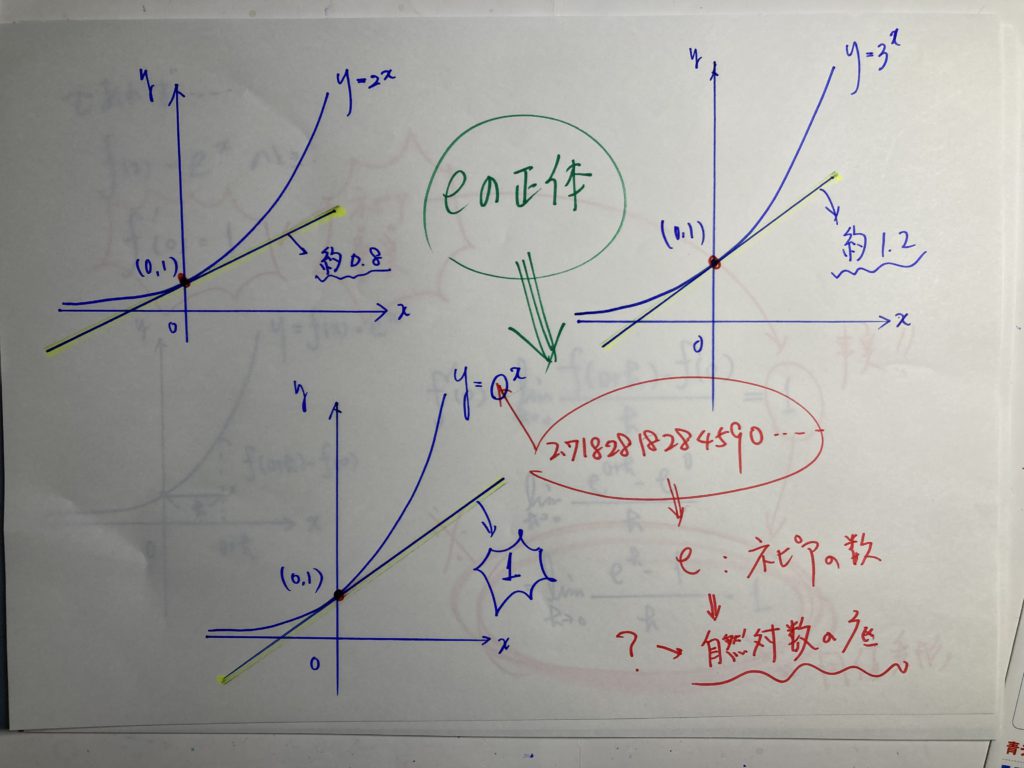 y
y=2ˣ
(0,1)
約0.8
0
x
eの正体
y
y=3ˣ
(0,1)
約1.2
0
x
y
y=
x
2.7182818284590……
(0,1)
1
0
x
e：ネピアの数
?→自然対数の底